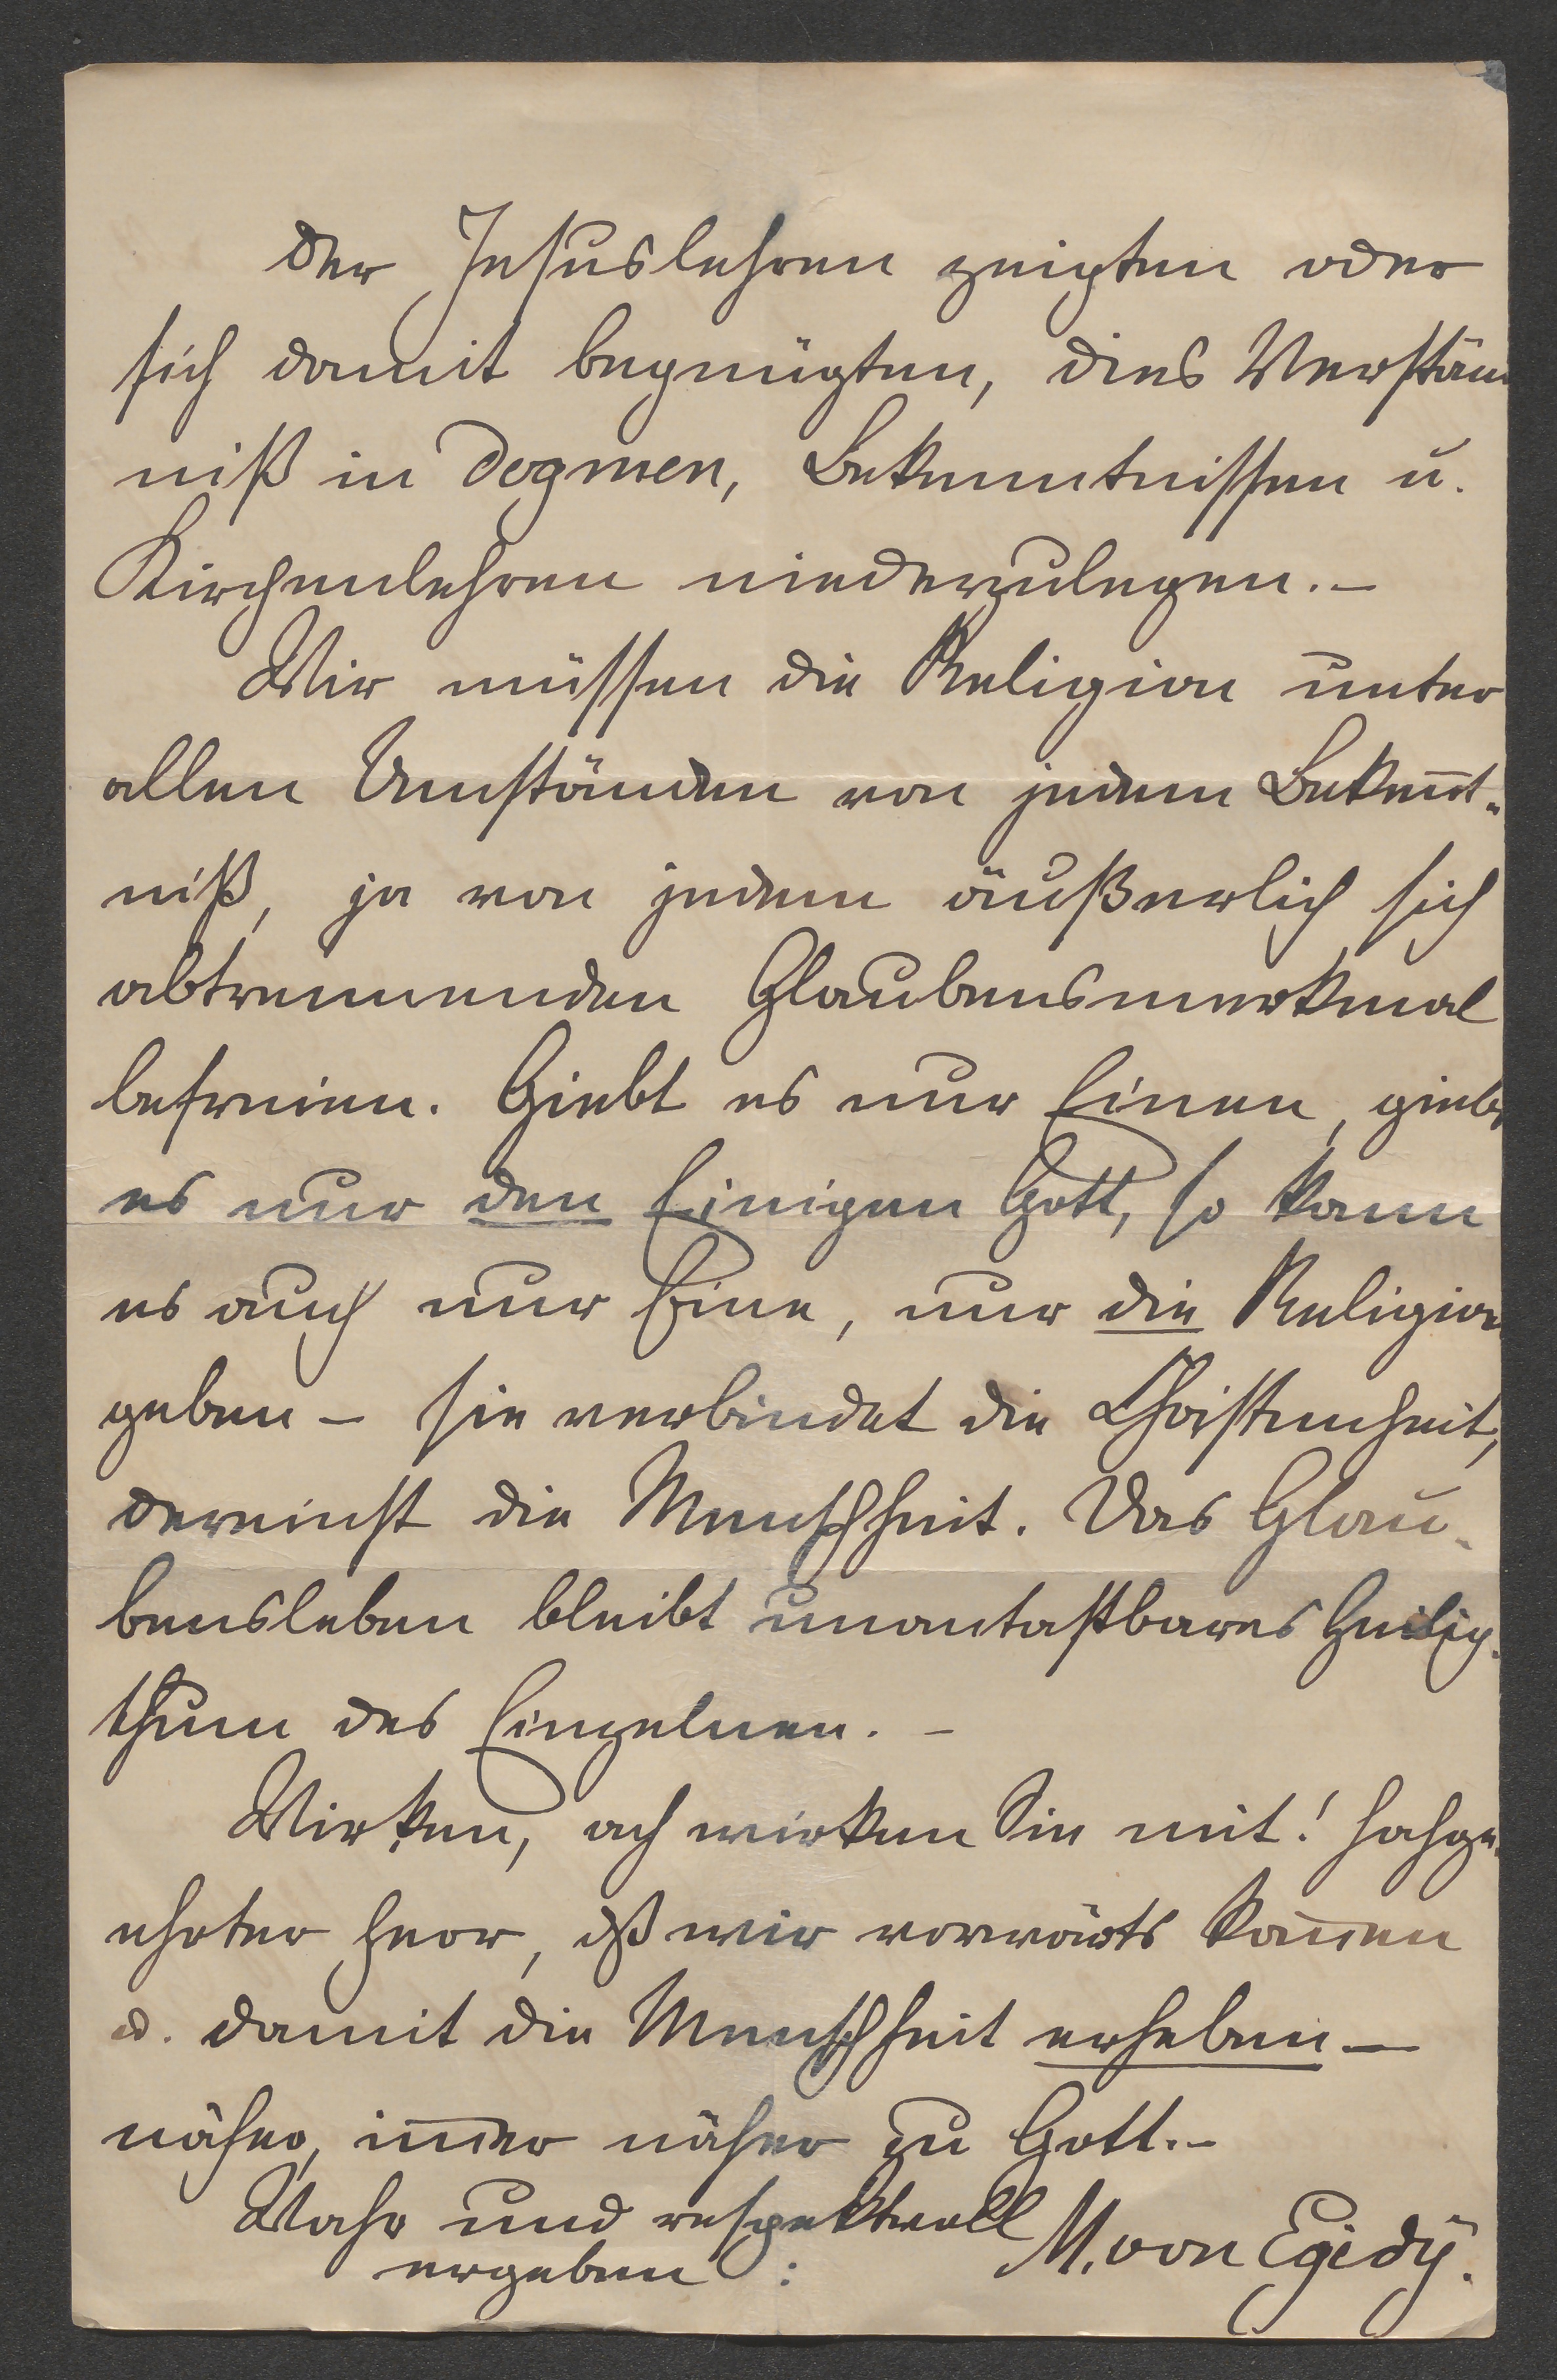 der Jesuslehren zeigten oder
sich damit begnügten, dies Verständ
niß in Dogmen, Bekenntnissen u.
Kirchenlehren niederzulegen. –
Wir müssen die Religion unter
allen Umständen von jedem Beken̅t-
niß, ja von jedem äußerlich sich
abtrennenden Glaubensmerkmal
befreien. Giebt es nur Einen, giebt
es nur den Einigen Gott, so kann
es auch nur Eine, nur die Religion
geben – sie verbindet die Christenheit,
dereinst die Menschheit. Das Glau-
bensleben bleibt unantastbares Heilig-
thum des Einzelnen. –
Wirken, ach wirken Sie mit! hochge-
ehrter Herr, dß wir vorwärts kom̅en
u. damit die Menschheit erheben –
näher, im̅er näher zu Gott. –
Wahr und respektvoll
ergeben :
M. von Egidÿ.